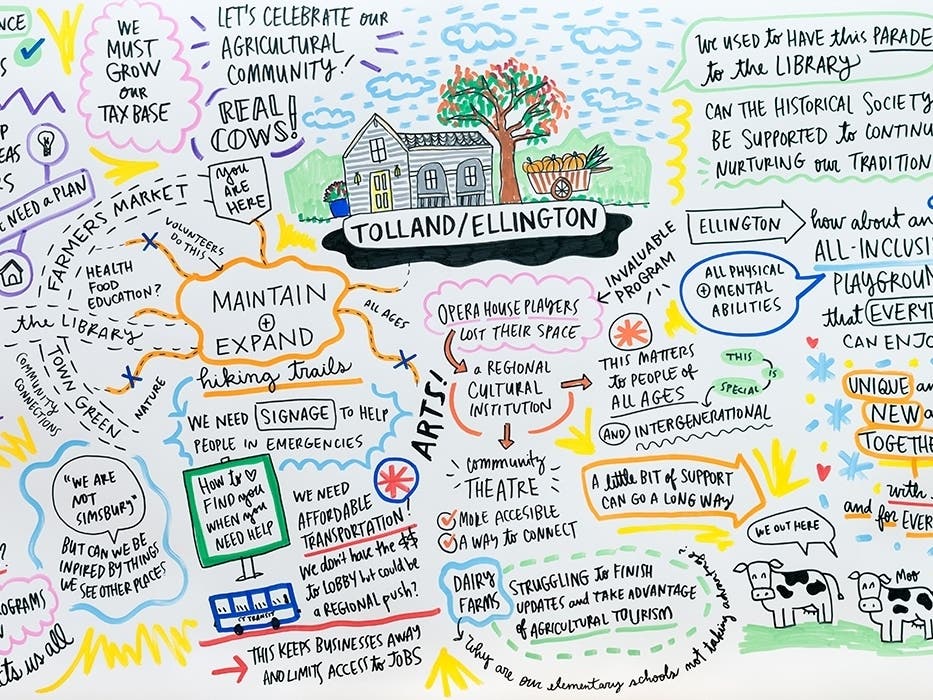 WE
MUST
GROW
OUR
TAX BASE
LET'S CELEBRATE OUR
AGRICULTURAL
COMMUNITY!
REAL
COWS!
YOU
ARE
HERE
E NEED A PLAN
FARMERS MARKET
VOLUNTEERS
DO THIS
HEALTH
FOOD
EDUCATION?
the LIBRARY
TOWN GREEN
COMMUNITY
CONNECTIONS
NATURE
ALL AGES
MAINTAIN
+
EXPAND
hiking trails
WE NEED SIGNAGE TO HELP
PEOPLE IN EMERGENCIES
"WE ARE
NOT
SIMSBURY"
BUT CAN WE BE
INPIRED BY THINGS
WE SEE OTHER PLACES
HOW to
FIND you
WHEN you
NEED HELP
WE NEED
AFFORDABLE
TRANSPORTATION!
We don't have the $$
to LOBBY but could be
a REGIONAL push?
CT TRANSIT
THIS KEEPS BUSINESSES AWAY
AND LIMITS ACCESS to JOBS
OGRAMS
ts us all
TOLLAND/ELLINGTON
OPERA HOUSE PLAYERS
LOST THEIR SPACE
INVALUABLE
PROGRAM
ARTS!
a REGIONAL
CULTURAL
INSTITUTION
THIS MATTERS
to PEOPLE of
ALL AGES
AND INTERGENERATIONAL
THIS
IS
SPECIAL
community
THEATRE
MORE ACCESIBLE
A WAY to CONNECT
A little BIT of SUPPORT
CAN GO A LONG WAY
DAIRY
FARMS
STRUGGLING to FINISH
UPDATES and TAKE ADVANTAGE
of AGRICULTURAL TOURISM
Why are our elementary schools not taking advantage of it?
We USED to HAVE this PARADE
to the LIBRARY
CAN THE HISTORICAL SOCIETY
BE SUPPORTED to CONTINU
NURTURING our TRADITION
ELLINGTON
how about an
ALL-INCLUSI
PLAYGROUN
that EVERYT
CAN ENJO
ALL PHYSICAL
+ MENTAL
ABILITIES
UNIQUE an
NEW a
TOGETHE
with
and for EVER
WE OUT HERE
Moo